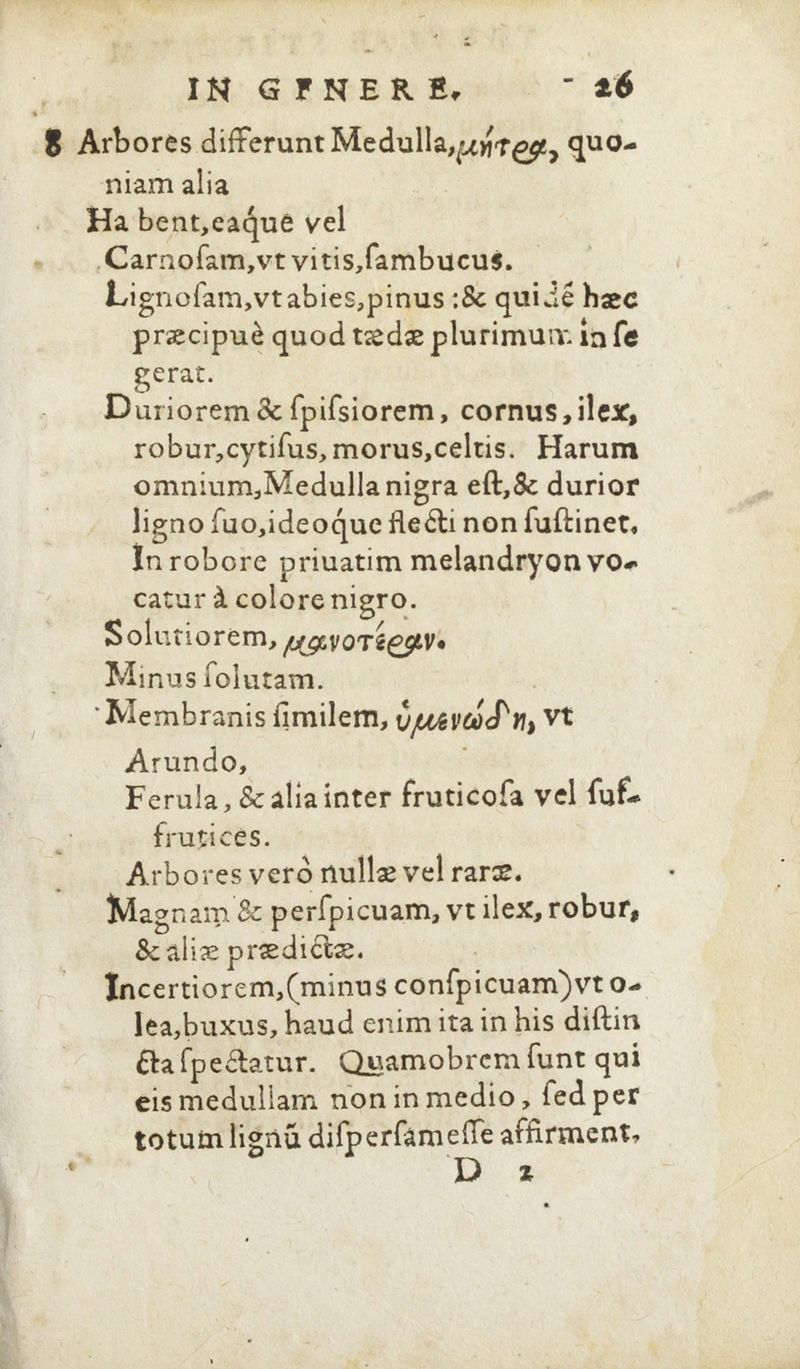 IN GENERE, 26
8 Arbores differunt Medulla, μήτρᾳ, quo-
niam alia
Ha bent,eaque vel
Carnoſam,vt vitis,ſambucus.
Lignoſam,vt abies,pinus :& quidẽ hæc
præcipuè quod tædæ plurimum in ſe
gerat.
Duriorem & ſpiſsiorem, cornus, ilex,
robur,cytiſus, morus,celtis. Harum
omnium,Medulla nigra eſt,& durior
ligno ſuo,ideoque flecti non ſuſtinet.
In robore priuatim melandryon vo-
catur à colore nigro.
Solutiorem, μανοτέραν.
Minus ſolutam.
Membranis ſimilem, ὑμενώδη, vt
Arundo,
Ferula, & alia inter fruticoſa vel ſuf-
frutices.
Arbores verò nullæ vel raræ.
Magnam & perſpicuam, vt ilex, robur,
& aliæ prædictæ.
Incertiorem,(minus conſpicuam)vt o-
lea,buxus, haud enim ita in his diſtin
cta ſpectatur. Quamobrem ſunt qui
eis medullam non in medio, ſed per
totum lignũ diſperſam eſſe affirment,
D 2